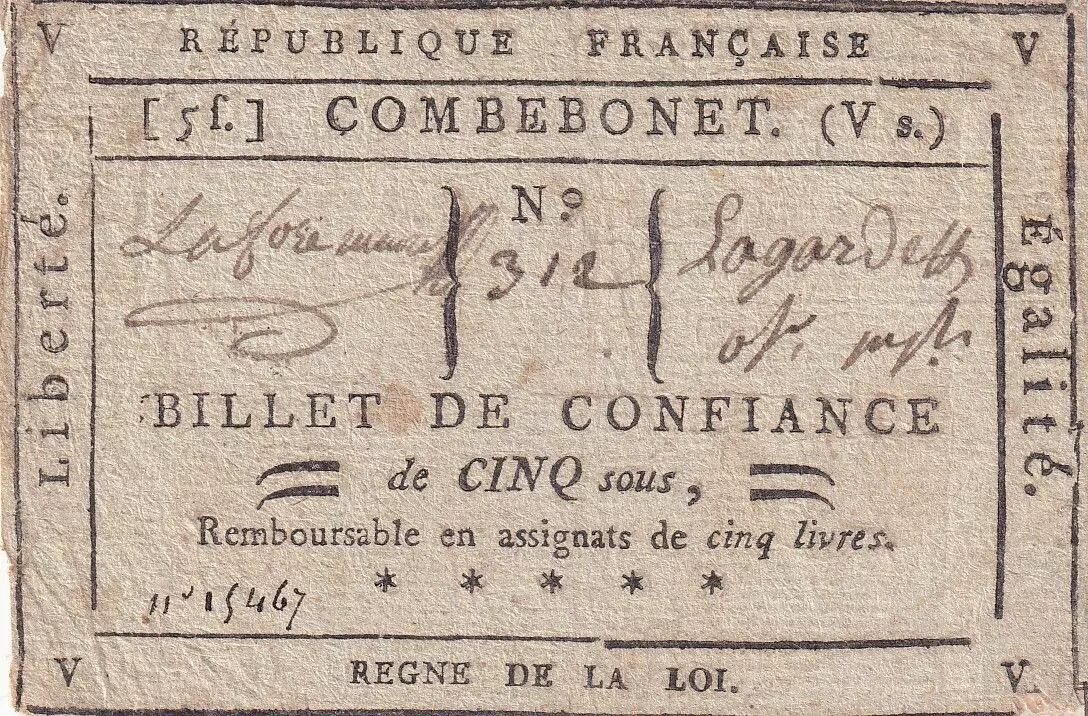 V RÉPUBLIQUE FRANÇAISE V
[5ſ.] COMBEBONET. (V s.)
Liberté.
N.o
312
Lagardelle
Égalité.
BILLET DE CONFIANCE
de CINQ sous,
Remboursable en assignats de cinq livres.
* * * * *
n° 15467
V REGNE DE LA LOI. V.